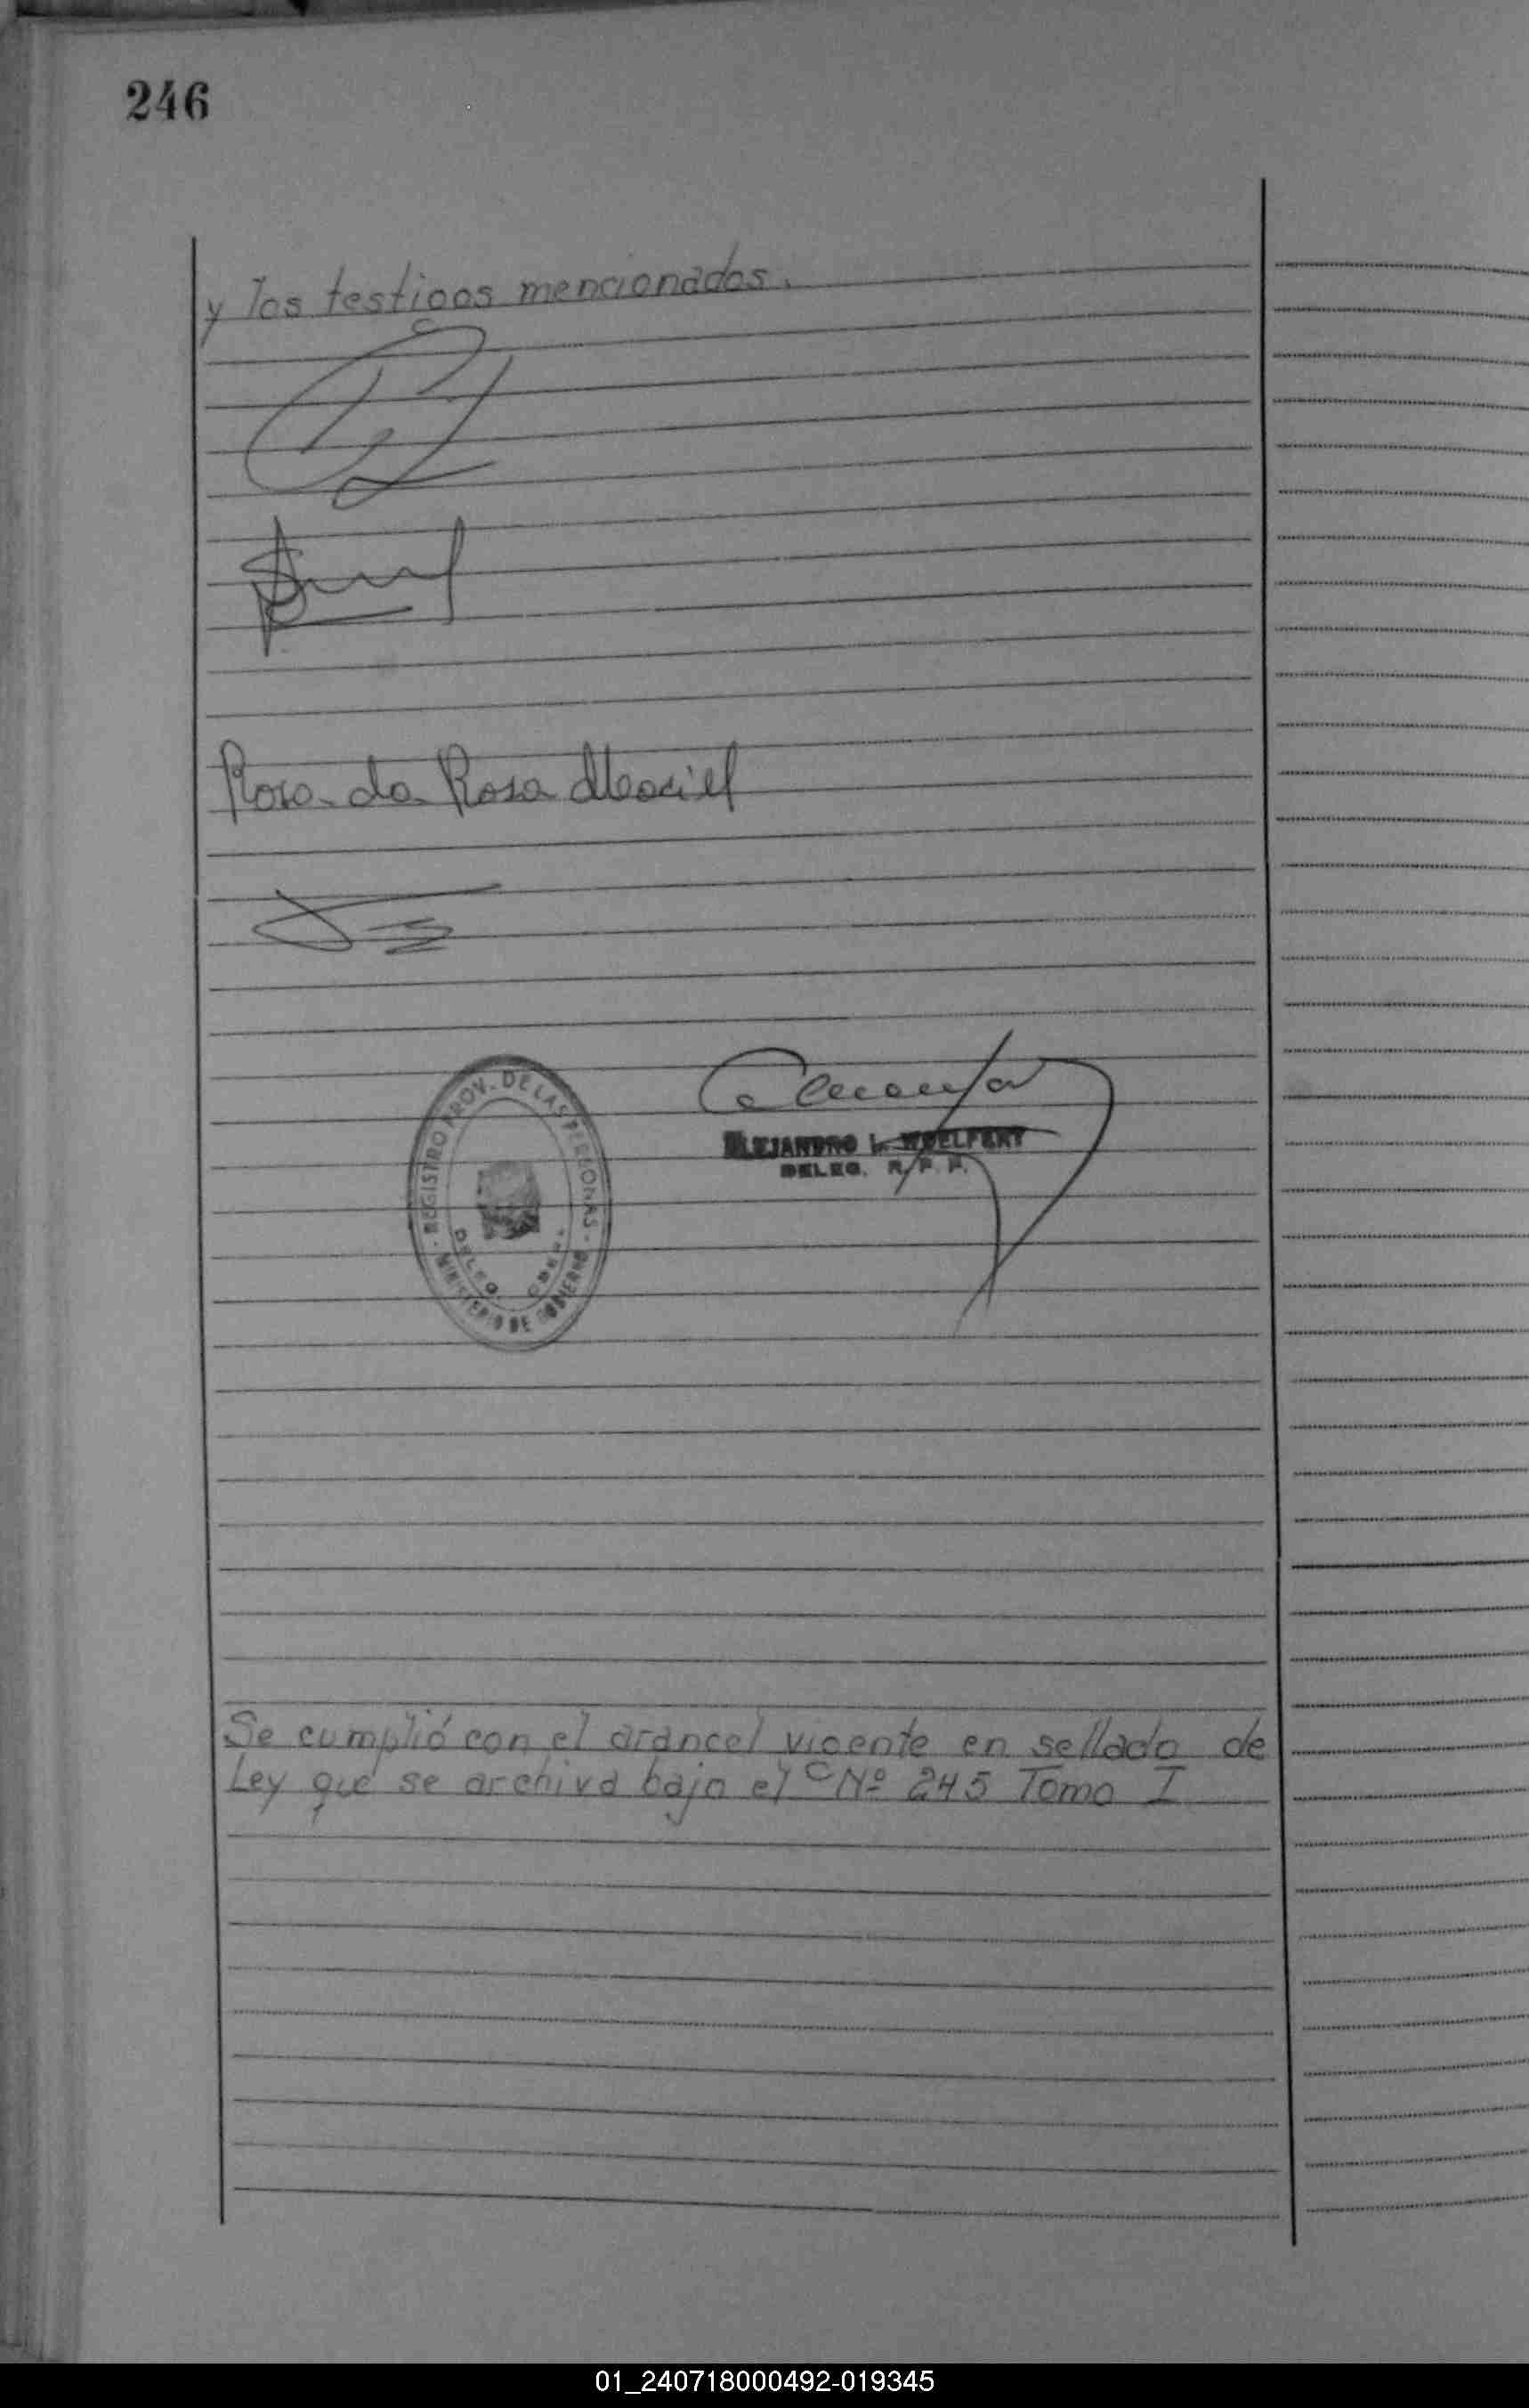 246
y los testigos mencionados.
Rosa da Rosa Maciel
ALEJANDRO L. WOELFERT
DELEG. R. P. P.
REGISTRO PROV. DE LAS PERSONAS
DELEG.
MINISTERIO DE GOBIERNO
Se cumplió con el arancel vigente en sellado de
Ley que se archiva bajo el Nº 245 Tomo I
01_240718000492-019345